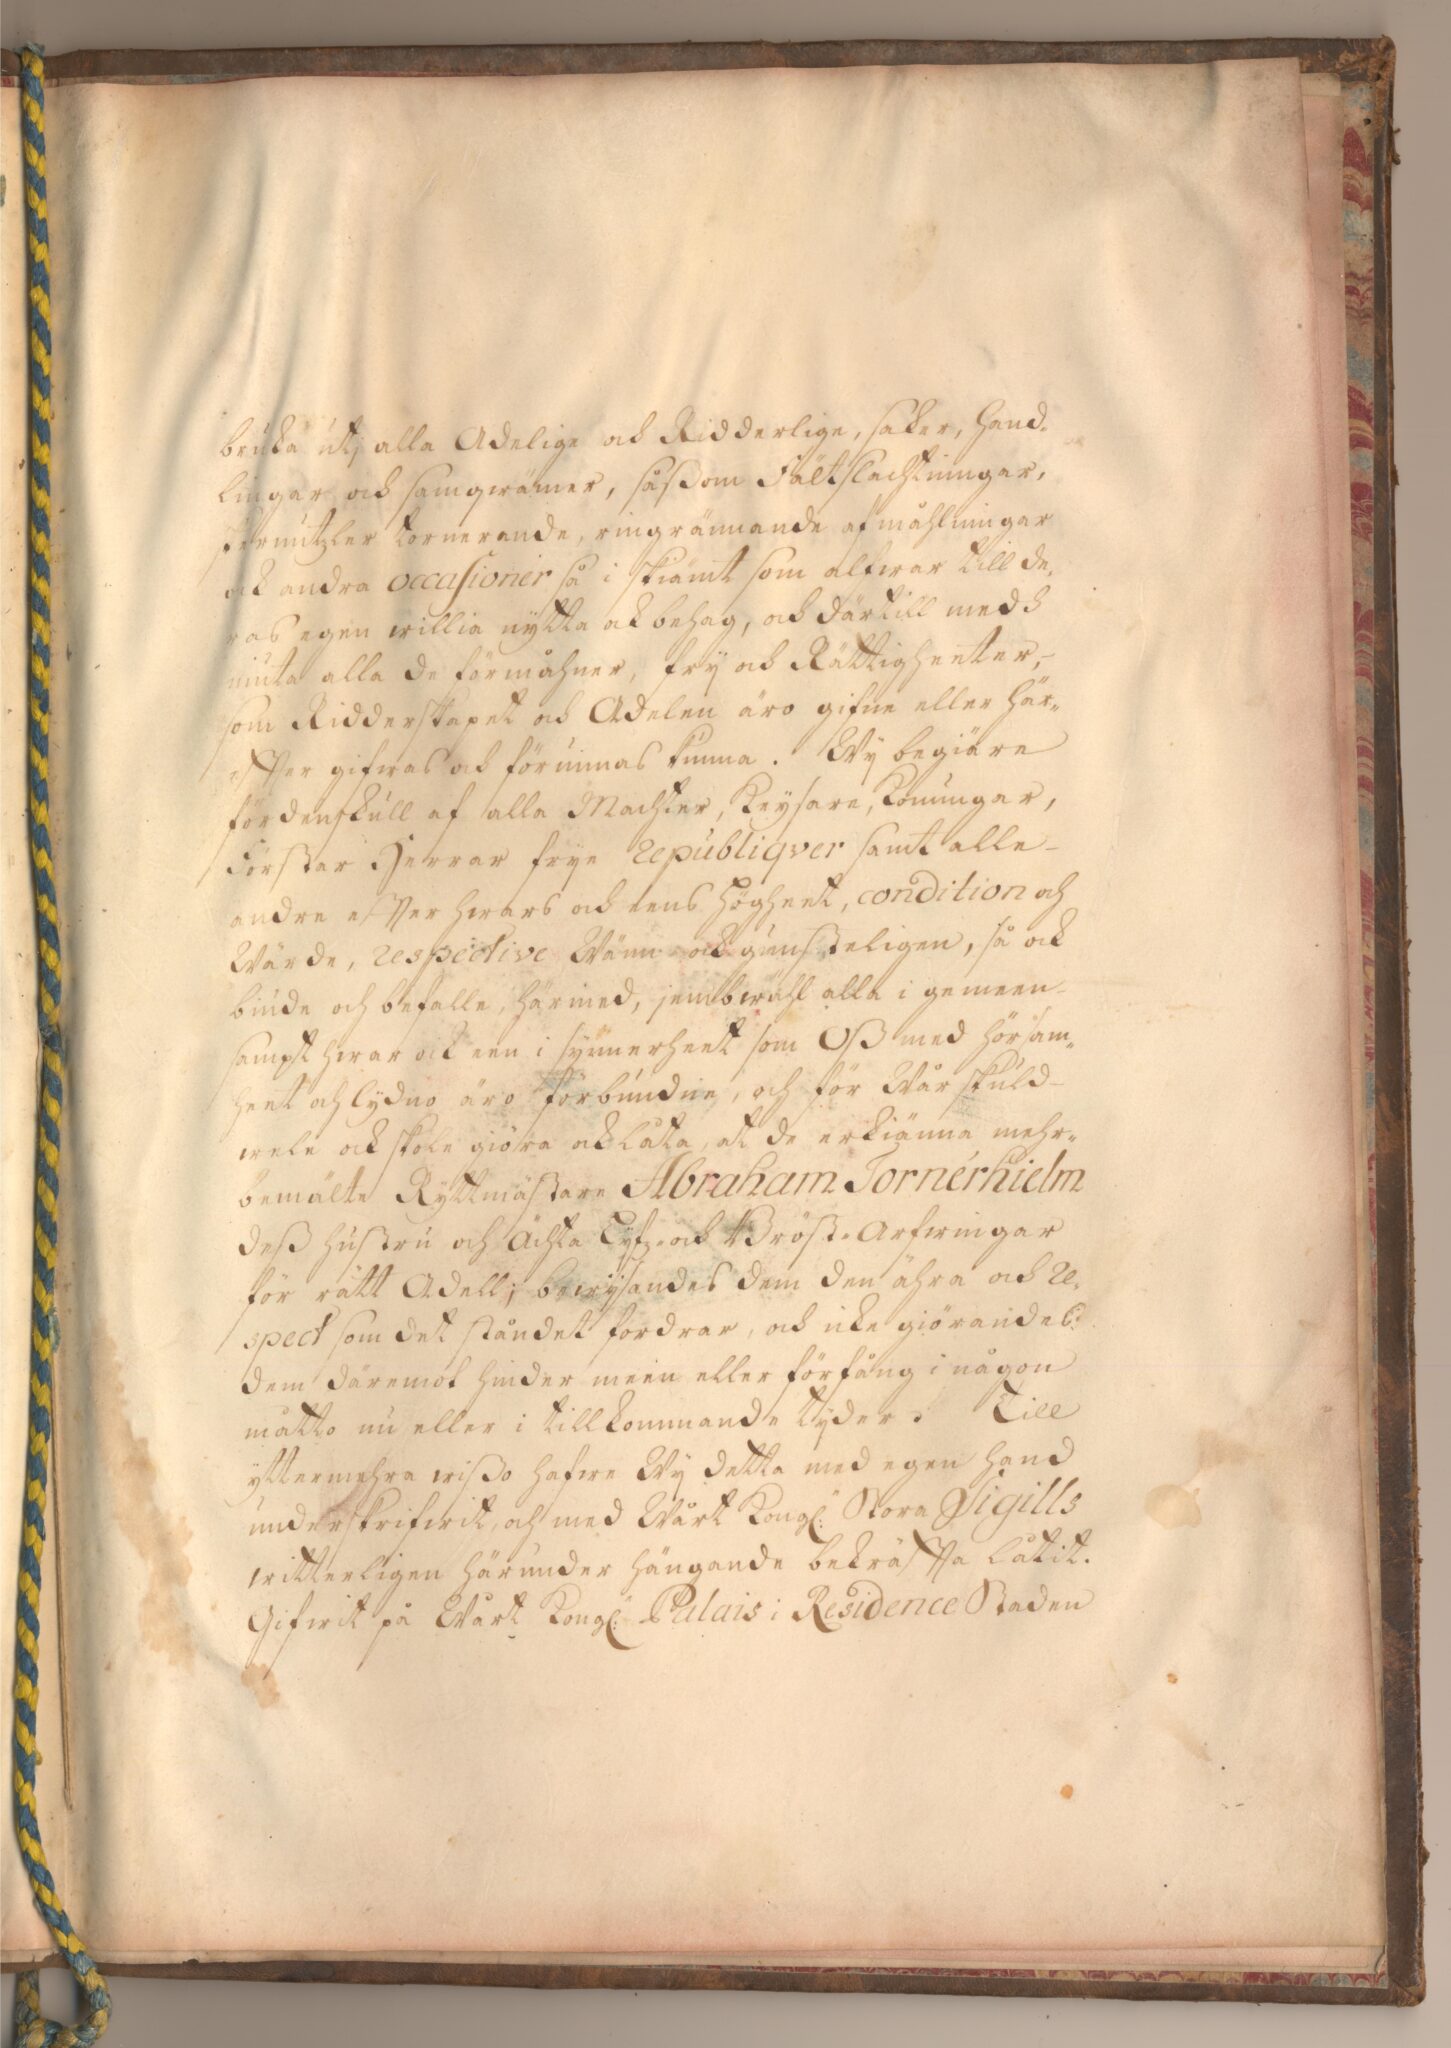 bruka utj alla Adelige och Ridderlige, saker, hand-
lingar och samqwämer, såssom Fältslachtningar,
Fernitzler tornerande, ringrännande afmåhlningar
och andra occasioner så i skiämt som alfwar till de-
ras egen willia nytta och behag, och därtill medh
niuta alla de förmåhner, fry och Rättigheeter,
som Ridderskapet och Adelen äro gifne eller här-
effter gifwas och förunnas kunna. Wy begiäre
fördenskull af alla Machter, Keysare, Konungar,
Förstar Herrar frye Republiqver samt alle
andre effter hwars och eens högheet, condition och
Wärde, respective Wänn och gunsteligen, så och
biude och befalle härmed, jembwähl alla i gemeen
sampt hwar och een i synnerheet som Oß med hörsam-
heet och lydno äro förbundne, och för Wår skuld
wele och skole giöra och låta, at de erkiänna mehr-
bemälte Ryttmästare Abraham Tornérhielm
deß hustru och Ächta Lyfz- och Bröst-Arfwingar
för rätt Adell; bewysandes dem den ähra och re-
spect som det ståndet fordrar, och icke giörandes
dem däremot hinder meen eller förfång i någon
måtto nu eller i tillkommande tyder. Till
yttermehra wisso hafwe Wy detta med egen hand
underskrifwit, och med Wårt Kongl: Stora Sigills
witterligen härunder hängande bekräffta låtit.
Gifwit på Wårt Kongl: Palais i Residence Staden